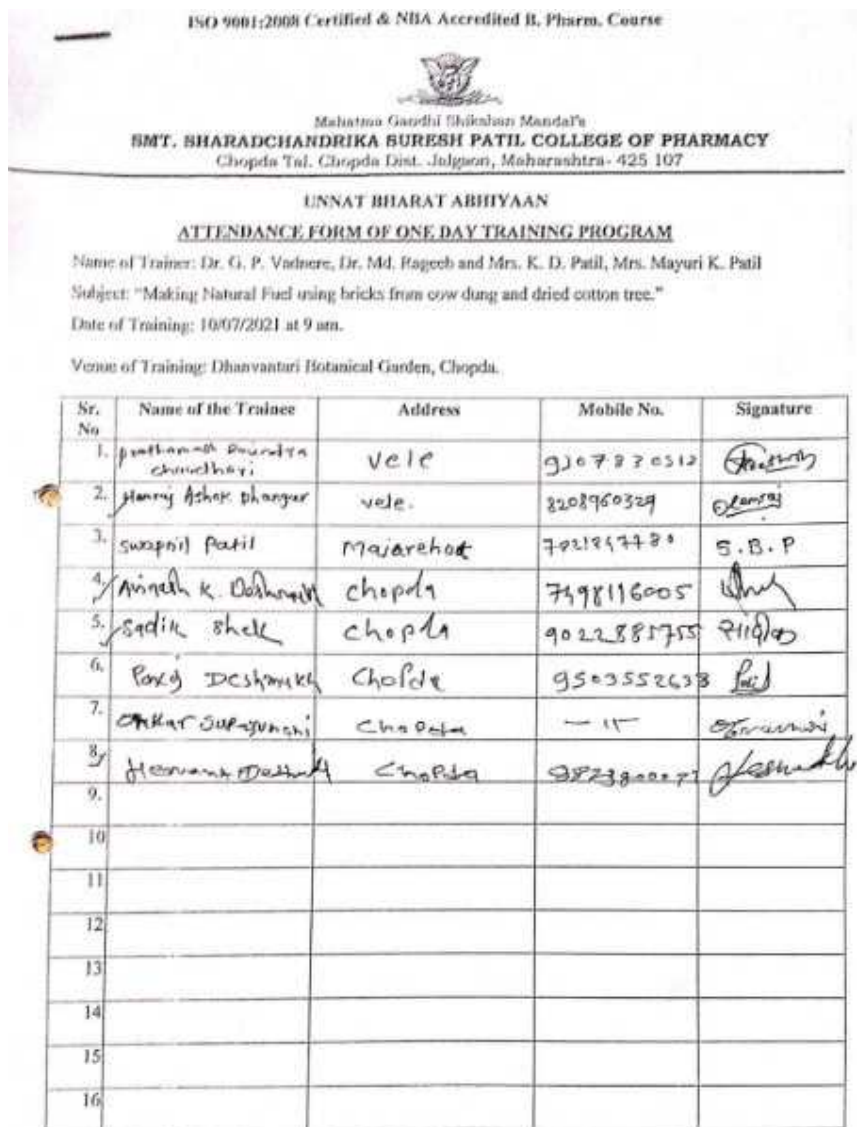 ISO 9001:2008 Certified & NBA Accredited B. Pharm. Course
Mahatma Gandhi Shikshan Mandal's
SMT. SHARADCHANDRIKA SURESH PATIL COLLEGE OF PHARMACY
Chopda Tal. Chopda Dist. Jalgaon, Maharashtra- 425 107
UNNAT BHARAT ABHIYAAN
ATTENDANCE FORM OF ONE DAY TRAINING PROGRAM
Name of Trainer: Dr. G. P. Vadnere, Dr. Md. Rageeb and Mrs. K. D. Patil, Mrs. Mayuri K. Patil
Subject: “Making Natural Fuel using bricks from cow dung and dried cotton tree.”
Date of Training: 10/07/2021 at 9 am.
Venue of Training: Dhanvantari Botanical Garden, Chopda.
Sr. No Name of the Trainee Address Mobile No. Signature
1. chaudhari vele
2. Ashok Dhangar vele. 8208960329
3. swapnil Patil S.B.P
4. K. Chopda 7498116005
5. Sadik Chopda 9022885755
6. Deshmukh Chopda 9503552638
7. Chopda — 11 —
8. Chopda
9.
10
11
12
13
14
15
16